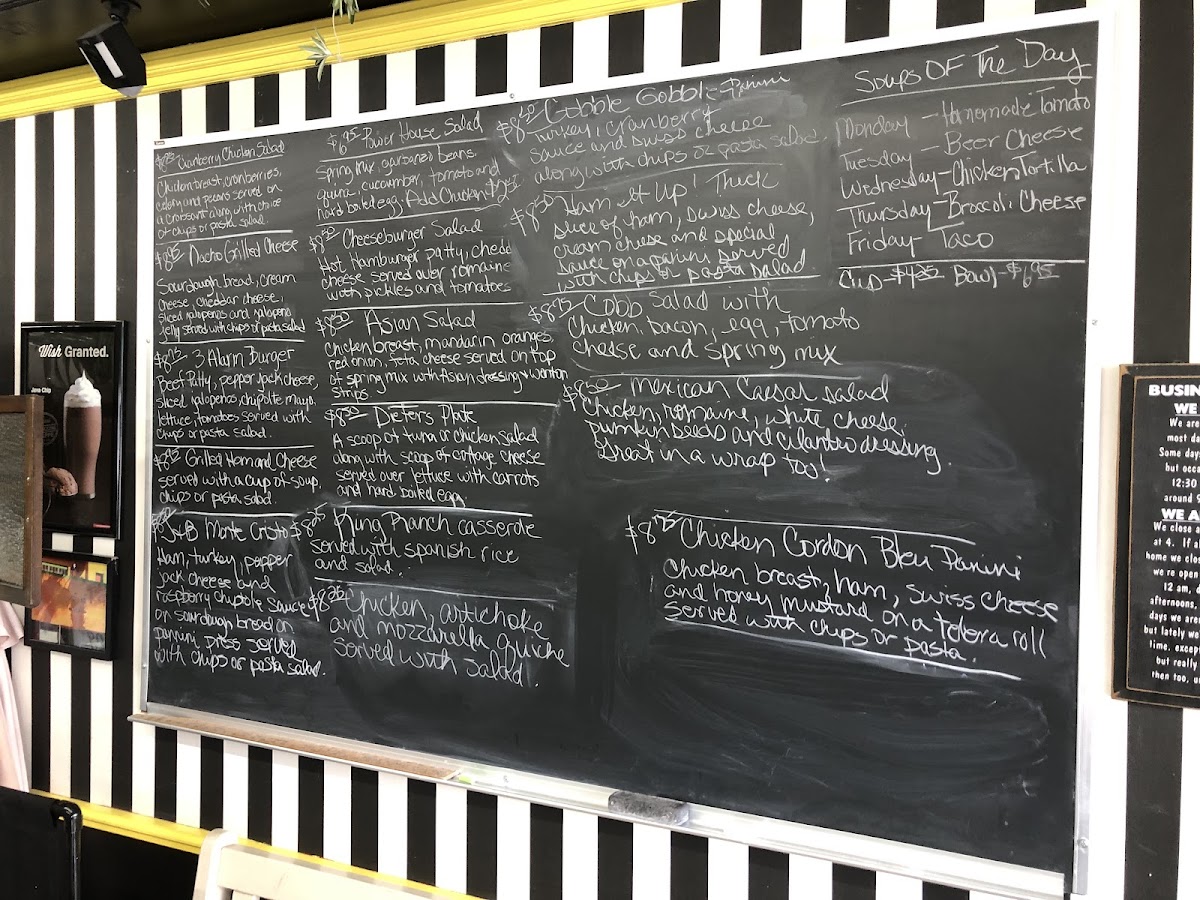 $8.75 Cranberry Chicken Salad
Chicken breast, cranberries,
celery and pecans served on
a croissant along with choice
of chips or pasta salad.
Nacho Grilled Cheese
Sourdough bread, cream
cheese, cheddar cheese,
sliced jalapenos and jalapeno
jelly served with chips or pasta salad
3 Alarm Burger
Beef Patty, pepper jack cheese,
sliced jalapenos, chipotle mayo,
lettuce, tomatoes served with
chips or pasta salad.
Grilled Ham and Cheese
served with a cup of soup,
chips or pasta salad.
Monte Cristo
Ham, turkey, pepper
jack cheese and
raspberry chipotle sauce
on sourdough bread on
pannini press served
with chips or pasta salad.
$6.95 Power House Salad
Spring mix, garbanzo beans,
quinoa, cucumber, tomato and
hard boiled egg. Add Chicken
Cheeseburger Salad
Hot Hamburger patty, chedd
cheese served over romaine
with pickles and tomatoes
Asian Salad
Chicken breast, mandarin oranges,
red onion, feta cheese served on top
of spring mix with Asian dressing & wonton
strips.
Dieters Plate
A scoop of tuna or chicken salad
along with scoop of cottage cheese
served over lettuce with carrots
and hard boiled egg.
King Ranch casserole
served with spanish rice
and salad.
Chicken, artichoke
and mozzarella quiche
served with salad.
Gobble Gobble Panini
Turkey, cranberry
sauce and swiss cheese
along with chips or pasta salad.
Ham it Up! Thick
slice of ham, swiss cheese,
cream cheese and special
sauce on a panini served
with chips or pasta salad
$8.75 Cobb Salad with
Chicken, bacon, egg, tomato
cheese and spring mix
$8.50 Mexican Caesar salad
Chicken, romaine, white cheese,
pumpkin seeds and cilantro dressing.
Great in a wrap too!
$8.75 Chicken Cordon Bleu Panini
Chicken breast, ham, swiss cheese
and honey mustard on a telera roll
served with chips or pasta.
Soups OF The Day
Monday - Homemade Tomato
Tuesday - Beer Cheese
Wednesday - Chicken Tortilla
Thursday - Broccoli Cheese
Friday - Taco
Cup - $4.25 Bowl - $6.95
Wish Granted.
Java Chip
BUSIN
WE
We are
most da
Some days
but occa
12:30
around 9
WE A
We close a
at 4. If all
home we clos
we re open
12 am, o
afternoons,
days we are
but lately we
time, except
but really
then too, u